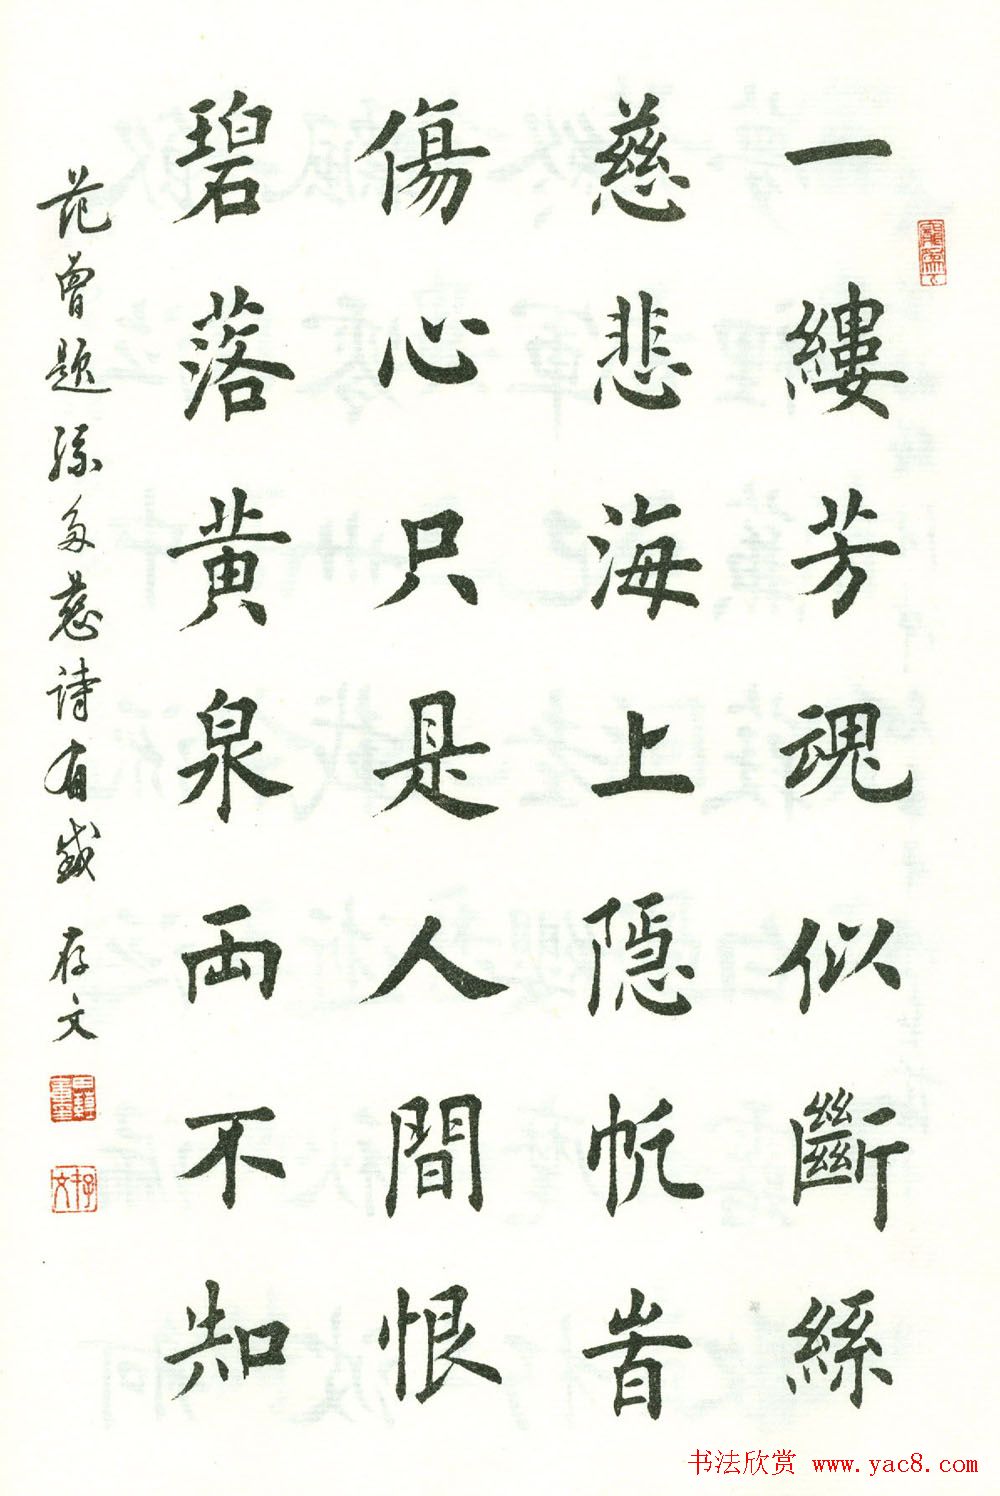 一縷芳魂似斷絲
慈悲海上隱帆旹
傷心只是人間恨
碧落黄泉両不知
范曾題孫多慈詩有感 存文
存文
书法欣赏 www.yac8.com